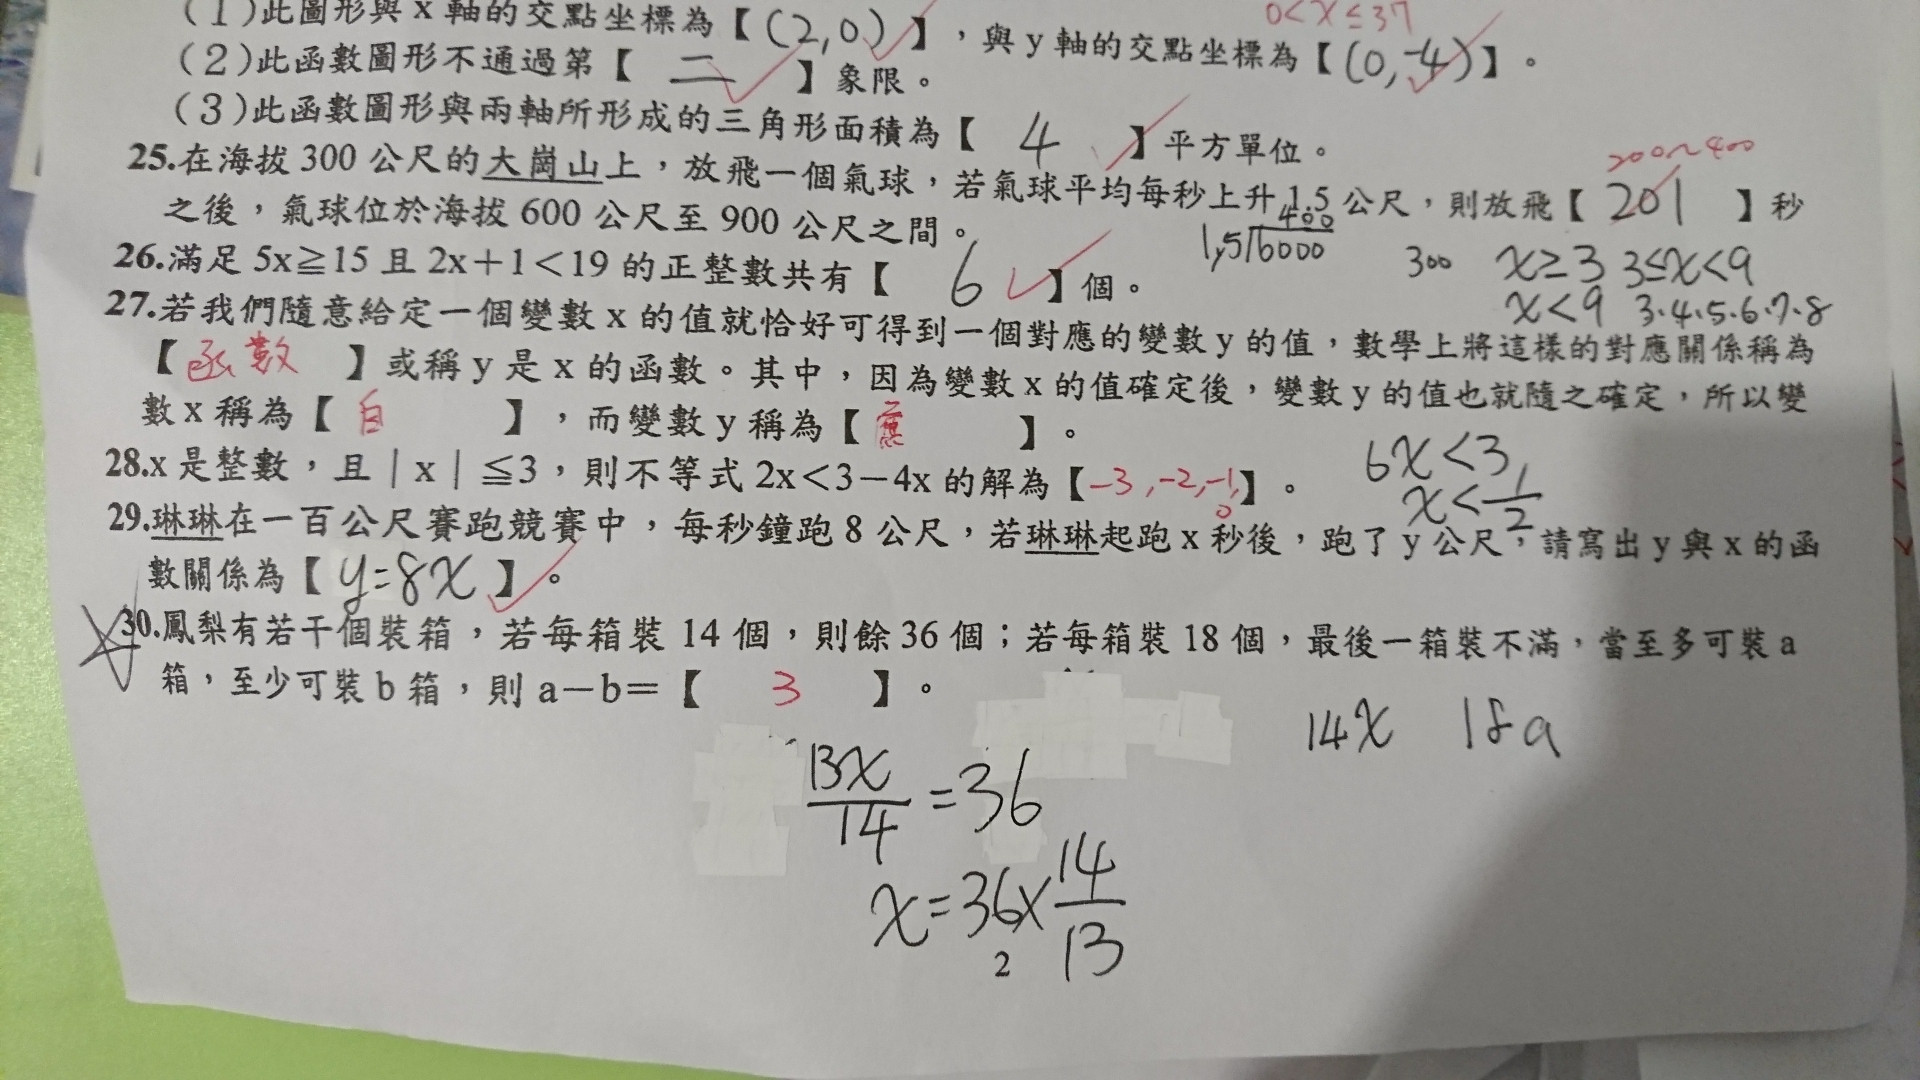 (1)此圖形與 x 軸的交點坐標為【(2,0)】,與 y 軸的交點坐標為【(0,-4)】。
0<x≦37
(2)此函數圖形不通過第【 二 】象限。
(3)此函數圖形與兩軸所形成的三角形面積為【 4 】平方單位。
200~400
25.在海拔 300 公尺的大崗山上,放飛一個氣球,若氣球平均每秒上升 1.5 公尺,則放飛【 201 】秒
之後,氣球位於海拔 600 公尺至 900 公尺之間。
400
1.5 6000
300
x≥3 3≤x<9
x<9 3.4.5.6.7.8
26.滿足 5x≧15 且 2x+1<19 的正整數共有【 6 】個。
27.若我們隨意給定一個變數 x 的值就恰好可得到一個對應的變數 y 的值,數學上將這樣的對應關係稱為
【 函數 】或稱 y 是 x 的函數。其中,因為變數 x 的值確定後,變數 y 的值也就隨之確定,所以變
數 x 稱為【 自 】,而變數 y 稱為【 應 】。
28.x 是整數,且|x|≦3,則不等式 2x<3-4x 的解為【-3,-2,-1,0】。
6x<3
x<1/2
29.琳琳在一百公尺賽跑競賽中,每秒鐘跑 8 公尺,若琳琳起跑 x 秒後,跑了 y 公尺,請寫出 y 與 x 的函
數關係為【 y=8x 】。
30.鳳梨有若干個裝箱,若每箱裝 14 個,則餘 36 個;若每箱裝 18 個,最後一箱裝不滿,當至多可裝 a
箱,至少可裝 b 箱,則 a-b=【 3 】。
14x 18a
13x/14 =36
x=36×14/13
2